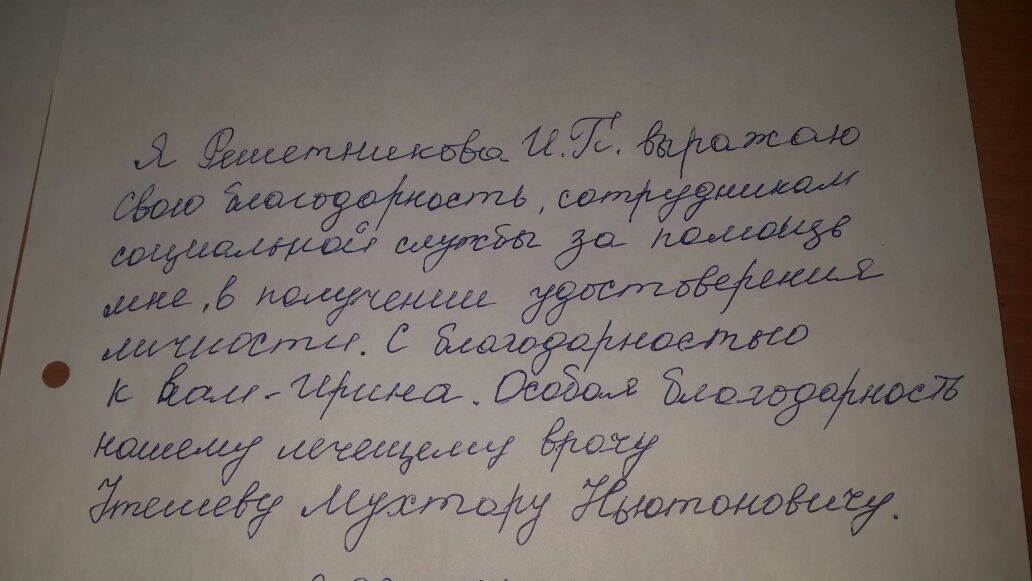 Я Решетникова И.П. выражаю
свою благодарность, сотрудникам
социальной службы за помощь
мне, в получении удостоверения
личности. С благодарностью
к вам - Ирина. Особая благодарность
нашему лечещему врачу
Утешеву Мухтару Ньютоновичу.